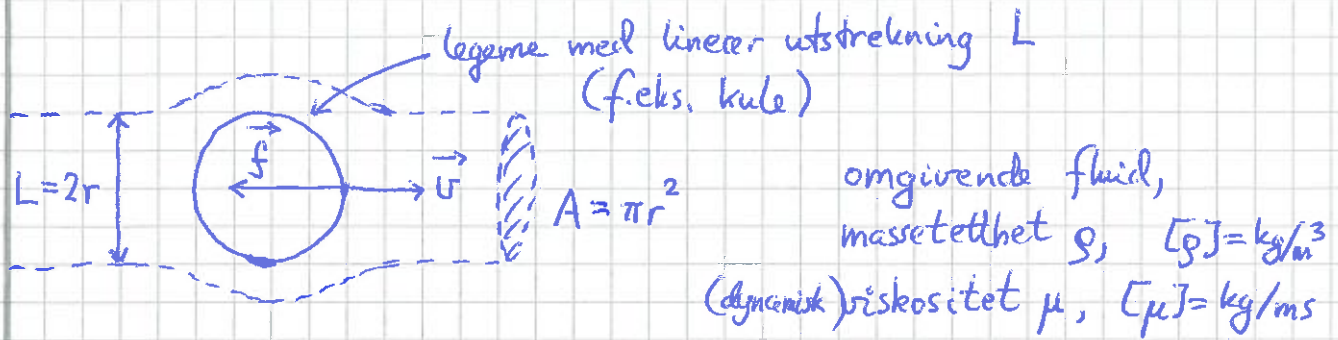 legeme med lineær utstrekning L
(f.eks. kule)
f
L=2r
v
A = πr²
omgivende fluid,
massetetthet ρ, [ρ]=kg/m³
(dynamisk) viskositet μ, [μ]= kg/ms